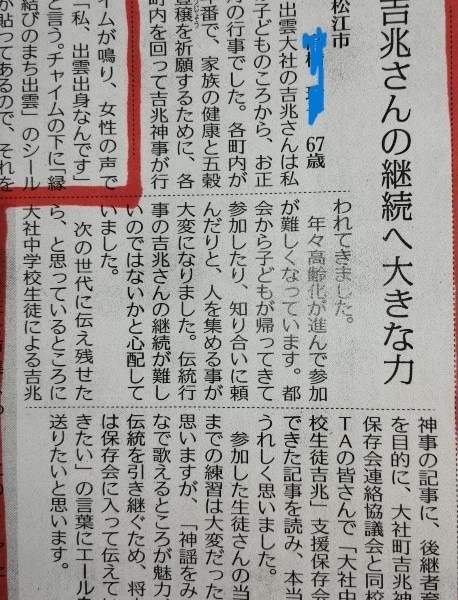 吉兆さんの継続へ大きな力
松江市
67歳
出雲大社の吉兆さんは私
子どものころから、お正
月の行事でした。各町内が
年番で、家族の健康と五穀
豊穣を祈願するために、各
町内を回って吉兆神事が行
われてきました。
年々高齢化が進んで参加
が難しくなっています。都
会から子どもが帰ってきて
参加したり、知り合いに頼
んだりと、人を集める事が
大変になりました。伝統行
事の吉兆さんの継続が難し
いのではないかと心配して
いました。
次の世代に伝え残せた
ら、と思っているところに
大社中学校生徒による吉兆
神事の記事に、後継者育
を目的に、大社町吉兆神
保存会連絡協議会と同校
TAの皆さんで「大社中
校生徒吉兆」支援保存会
できた記事を読み、本当
うれしく思いました。
参加した生徒さんの当
までの練習は大変だった
思いますが、「神謡をみ
なで歌えるところが魅力
伝統を引き継ぐため、将
は保存会に入って伝えてい
きたい」の言葉にエールを
送りたいと思います。
イムが鳴り、女性の声で
「私、出雲出身なんです」
と言う。チャイムの下に「縁
結びのまち出雲」のシール
が貼ってあるので、それを